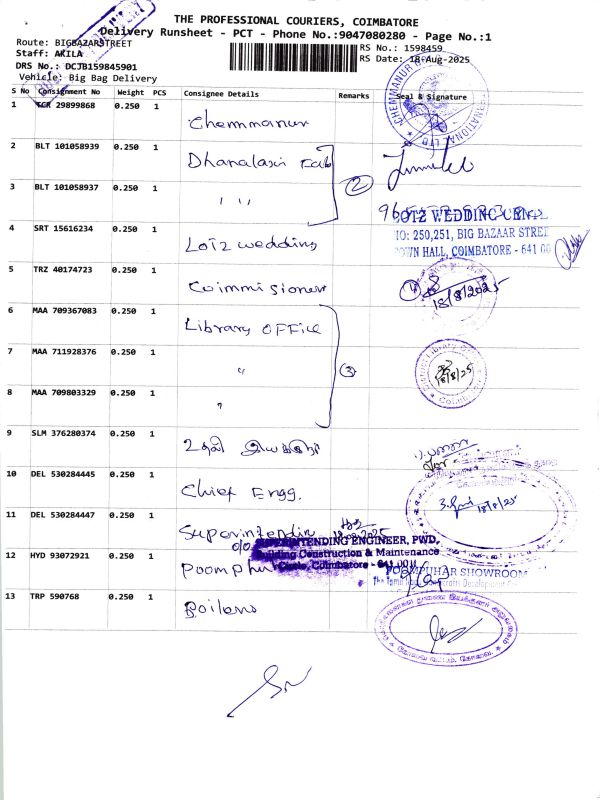 THE PROFESSIONAL COURIERS, COIMBATORE
Delivery Runsheet - PCT - Phone No.:9047080280 - Page No.:1
Route: BIGBAZARSTREET
RS No.: 1598459
Staff: AKILA
RS Date: 18-Aug-2025
DRS No.: DCJB159845901
Vehicle: Big Bag Delivery
S No Consignment No Weight PCS Consignee Details Remarks Seal & Signature
1 29899868 0.250 1 Chemmanur
2 BLT 101058939 0.250 1 Dhanalaxi Fab
3 BLT 101058937 0.250 1 " "
2
LOTZ WEDDING
NO: 250,251, BIG BAZAAR STREE
TOWN HALL, COIMBATORE - 641 00
4 SRT 15616234 0.250 1 Lotz wedding
5 TRZ 40174723 0.250 1 Coimmisioner
1
18/8/2025
6 MAA 709367083 0.250 1 Library OFFice
7 MAA 711928376 0.250 1 "
3
18/8/25
8 MAA 709803329 0.250 1 "
9 SLM 376280374 0.250 1 உதவி இயக்குநர்
10 DEL 530284445 0.250 1 Chief Engg.
18/8/25
11 DEL 530284447 0.250 1 Superintendin
O/O. SUPERINTENDING ENGINEER, PWD,
Building Construction & Maintenance
Circle, Coimbatore - 641 001
12 HYD 93072921 0.250 1 Poomphu
POOMPUHAR SHOWROOM
13 TRP 590768 0.250 1 Boilers